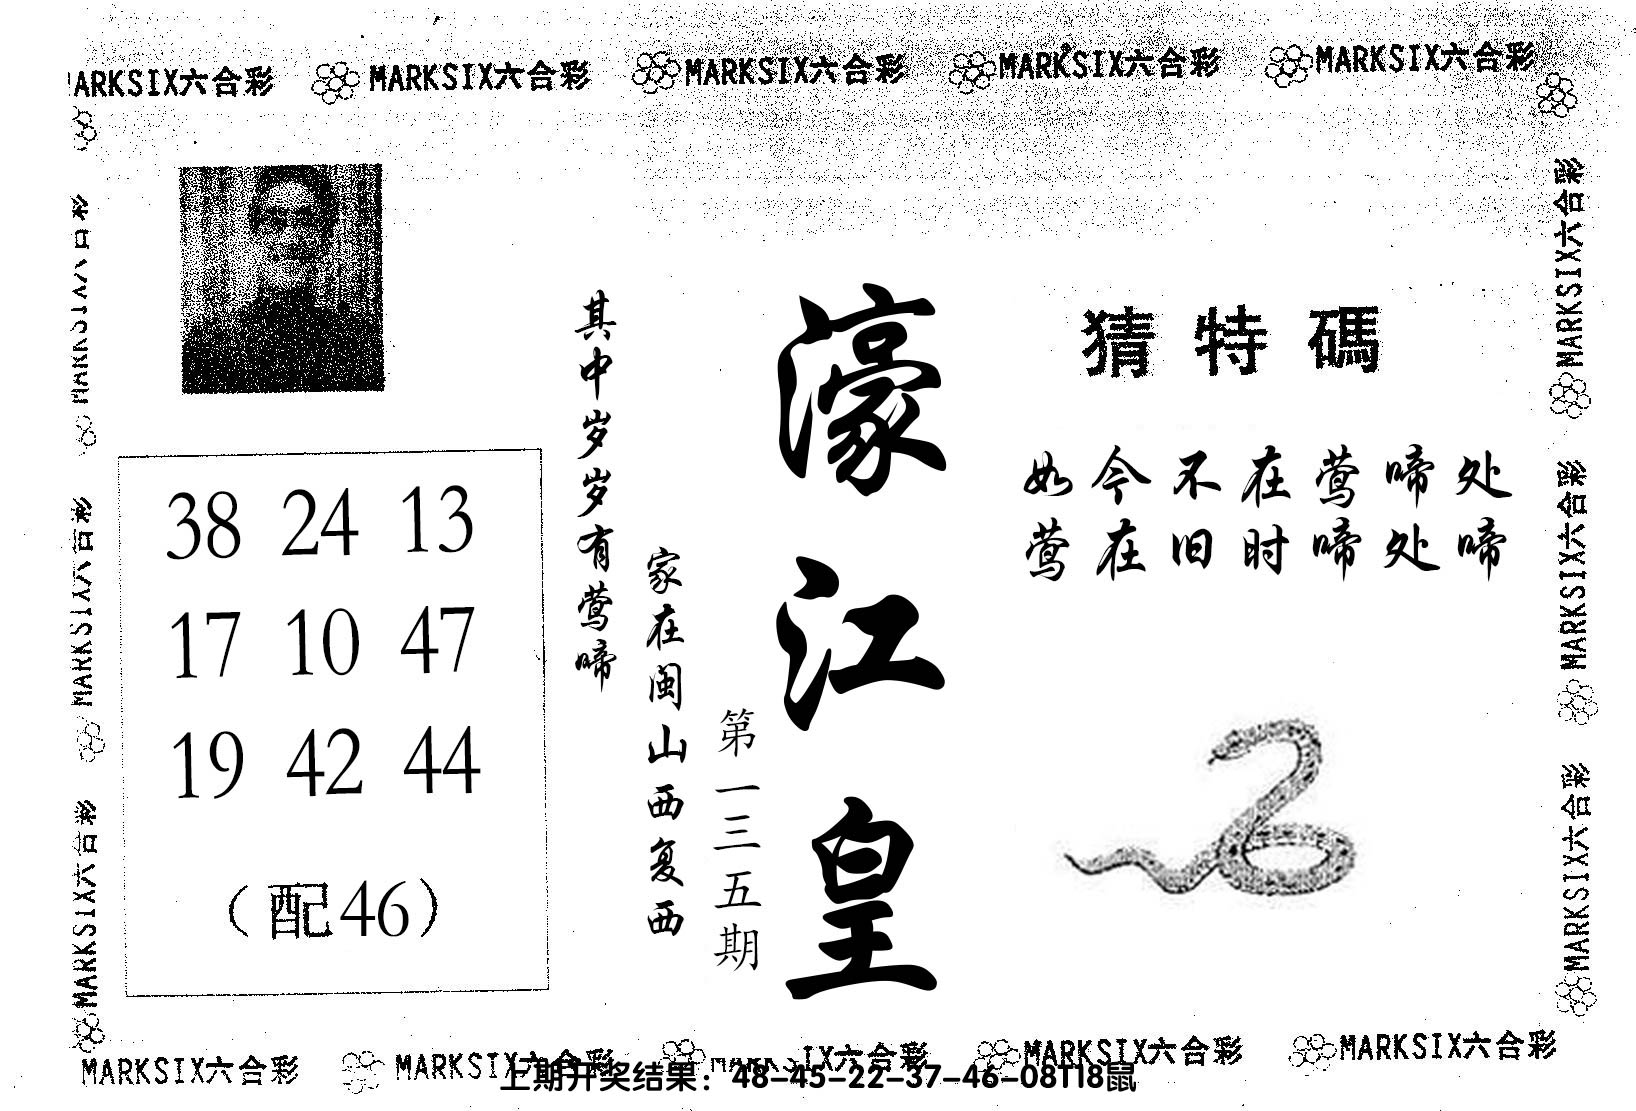 MARKSIX六合彩 MARKSIX六合彩 MARKSIX六合彩 MARKSIX六合彩 MARKSIX六合彩
MARKSIX六合彩
MARKSIX六合彩
MARKSIX六合彩
MARKSIX六合彩
MARKSIX六合彩
MARKSIX六合彩
猜特碼
如今不在莺啼处
莺在旧时啼处啼
濠江皇
第一三五期
家在闽山西复西
其中岁岁有莺啼
38 24 13
17 10 47
19 42 44
（配46）
MARKSIX六合彩 MARKSIX六合彩 MARKSIX六合彩 MARKSIX六合彩 MARKSIX六合彩
上期开奖结果：48-45-22-37-46-08T18鼠